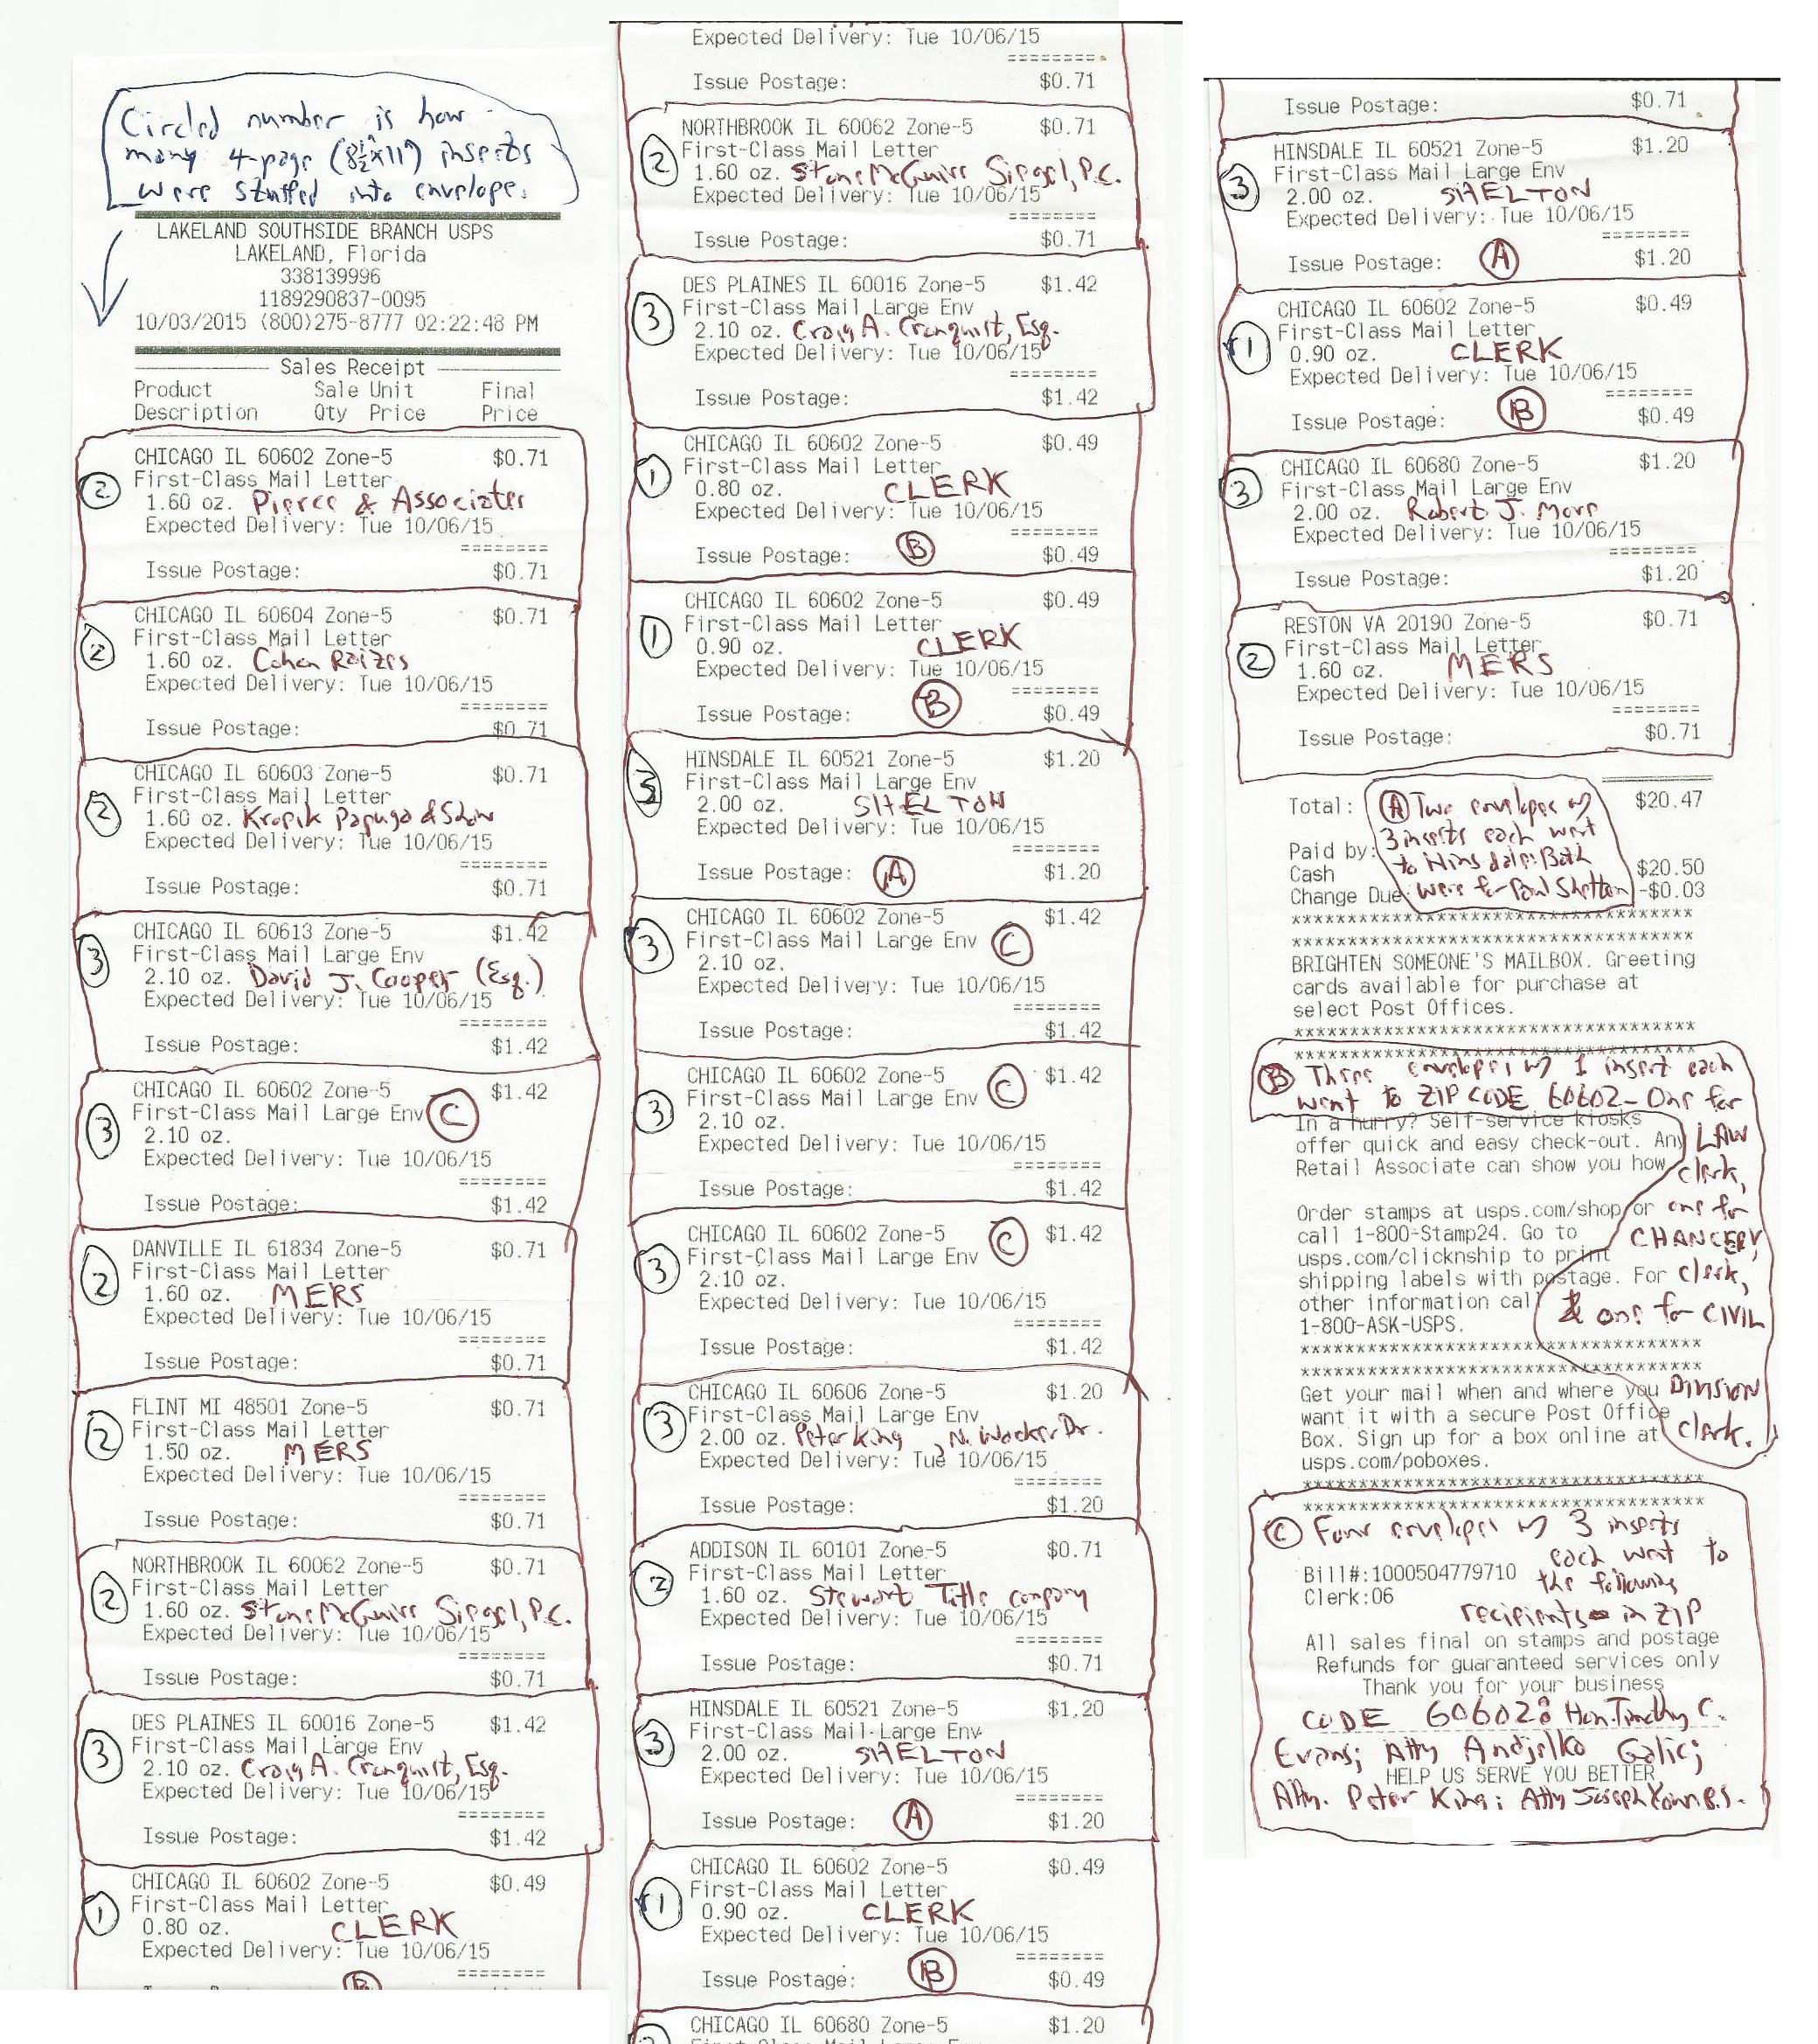 Circled number is how
many 4-page (8½"x11") inserts
were stuffed into envelope.
LAKELAND SOUTHSIDE BRANCH USPS
LAKELAND, Florida
338139996
1189290837-0095
10/03/2015 (800)275-8777 02:22:48 PM
Sales Receipt
Product Sale Unit Final
Description Qty Price Price
CHICAGO IL 60602 Zone-5 $0.71
First-Class Mail Letter
2 1.60 oz. Pierce & Associates
Expected Delivery: Tue 10/06/15
========
Issue Postage: $0.71
CHICAGO IL 60604 Zone-5 $0.71
First-Class Mail Letter
2 1.60 oz. Cohen Raizes
Expected Delivery: Tue 10/06/15
========
Issue Postage: $0.71
CHICAGO IL 60603 Zone-5 $0.71
First-Class Mail Letter
2 1.60 oz. Kropik Papuga & Shaw
Expected Delivery: Tue 10/06/15
========
Issue Postage: $0.71
CHICAGO IL 60613 Zone-5 $1.42
First-Class Mail Large Env
3 2.10 oz. David J. Cooper (Esq.)
Expected Delivery: Tue 10/06/15
========
Issue Postage: $1.42
CHICAGO IL 60602 Zone-5 $1.42
First-Class Mail Large Env C
3 2.10 oz.
Expected Delivery: Tue 10/06/15
========
Issue Postage: $1.42
DANVILLE IL 61834 Zone-5 $0.71
First-Class Mail Letter
2 1.60 oz. MERS
Expected Delivery: Tue 10/06/15
========
Issue Postage: $0.71
FLINT MI 48501 Zone-5 $0.71
First-Class Mail Letter
2 1.50 oz. MERS
Expected Delivery: Tue 10/06/15
========
Issue Postage: $0.71
NORTHBROOK IL 60062 Zone-5 $0.71
First-Class Mail Letter
2 1.60 oz. Stone McGuire Siegel, P.C.
Expected Delivery: Tue 10/06/15
========
Issue Postage: $0.71
DES PLAINES IL 60016 Zone-5 $1.42
First-Class Mail Large Env
3 2.10 oz. Craig A. Cronquist, Esq.
Expected Delivery: Tue 10/06/15
========
Issue Postage: $1.42
CHICAGO IL 60602 Zone-5 $0.49
First-Class Mail Letter
1 0.80 oz. CLERK
Expected Delivery: Tue 10/06/15
========
B
Expected Delivery: Tue 10/06/15
========
Issue Postage: $0.71
NORTHBROOK IL 60062 Zone-5 $0.71
First-Class Mail Letter
2 1.60 oz. Stone McGuire Siegel, P.C.
Expected Delivery: Tue 10/06/15
========
Issue Postage: $0.71
DES PLAINES IL 60016 Zone-5 $1.42
First-Class Mail Large Env
3 2.10 oz. Craig A. Cronquist, Esq.
Expected Delivery: Tue 10/06/15
========
Issue Postage: $1.42
CHICAGO IL 60602 Zone-5 $0.49
First-Class Mail Letter
1 0.80 oz. CLERK
Expected Delivery: Tue 10/06/15
========
Issue Postage: B $0.49
CHICAGO IL 60602 Zone-5 $0.49
First-Class Mail Letter
1 0.90 oz. CLERK
Expected Delivery: Tue 10/06/15
========
Issue Postage: B $0.49
HINSDALE IL 60521 Zone-5 $1.20
First-Class Mail Large Env
3 2.00 oz. SHELTON
Expected Delivery: Tue 10/06/15
========
Issue Postage: A $1.20
CHICAGO IL 60602 Zone-5 $1.42
3 First-Class Mail Large Env C
2.10 oz.
Expected Delivery: Tue 10/06/15
========
Issue Postage: $1.42
CHICAGO IL 60602 Zone-5 $1.42
First-Class Mail Large Env C
3 2.10 oz.
Expected Delivery: Tue 10/06/15
========
Issue Postage: $1.42
CHICAGO IL 60602 Zone-5 $1.42
First-Class Mail Large Env C
3 2.10 oz.
Expected Delivery: Tue 10/06/15
========
Issue Postage: $1.42
CHICAGO IL 60606 Zone-5 $1.20
First-Class Mail Large Env
3 2.00 oz. Peter King, N. Wacker Dr.
Expected Delivery: Tue 10/06/15
========
Issue Postage: $1.20
ADDISON IL 60101 Zone-5 $0.71
First-Class Mail Letter
2 1.60 oz. Stewart Title company
Expected Delivery: Tue 10/06/15
========
Issue Postage: $0.71
HINSDALE IL 60521 Zone-5 $1.20
First-Class Mail Large Env
3 2.00 oz. SHELTON
Expected Delivery: Tue 10/06/15
========
Issue Postage: A $1.20
CHICAGO IL 60602 Zone-5 $0.49
First-Class Mail Letter
1 0.90 oz. CLERK
Expected Delivery: Tue 10/06/15
========
Issue Postage: B $0.49
CHICAGO IL 60680 Zone-5 $1.20
Issue Postage: $0.71
HINSDALE IL 60521 Zone-5 $1.20
First-Class Mail Large Env
3 2.00 oz. SHELTON
Expected Delivery: Tue 10/06/15
========
Issue Postage: A $1.20
CHICAGO IL 60602 Zone-5 $0.49
First-Class Mail Letter
1 0.90 oz. CLERK
Expected Delivery: Tue 10/06/15
========
Issue Postage: B $0.49
CHICAGO IL 60680 Zone-5 $1.20
First-Class Mail Large Env
3 2.00 oz. Robert J. More
Expected Delivery: Tue 10/06/15
========
Issue Postage: $1.20
RESTON VA 20190 Zone-5 $0.71
First-Class Mail Letter
2 1.60 oz. MERS
Expected Delivery: Tue 10/06/15
========
Issue Postage: $0.71
Total: $20.47
Paid by:
Cash $20.50
Change Due: -$0.03
A Two envelopes w/
3 inserts each went
to Hinsdale: Both
were for Paul Shelton
************************************
************************************
BRIGHTEN SOMEONE'S MAILBOX. Greeting
cards available for purchase at
select Post Offices.
************************************
************************************
B Three envelopes w/ 1 insert each
went to ZIP CODE 60602 - One for
LAW
clerk,
one for
CHANCERY
clerk,
& one for CIVIL
DIVISION
clerk.
In a hurry? Self-service kiosks
offer quick and easy check-out. Any
Retail Associate can show you how
Order stamps at usps.com/shop or
call 1-800-Stamp24. Go to
usps.com/clicknship to print
shipping labels with postage. For
other information call
1-800-ASK-USPS.
************************************
************************************
Get your mail when and where you
want it with a secure Post Office
Box. Sign up for a box online at
usps.com/poboxes.
************************************
************************************
C Four envelopes w/ 3 inserts
each went to
the following
recipients in ZIP
CODE 60602: Hon. Timothy C.
Evans; Atty Andjelko Galic;
Atty. Peter King; Atty Joseph
Bill#:1000504779710
Clerk:06
All sales final on stamps and postage
Refunds for guaranteed services only
Thank you for your business
HELP US SERVE YOU BETTER